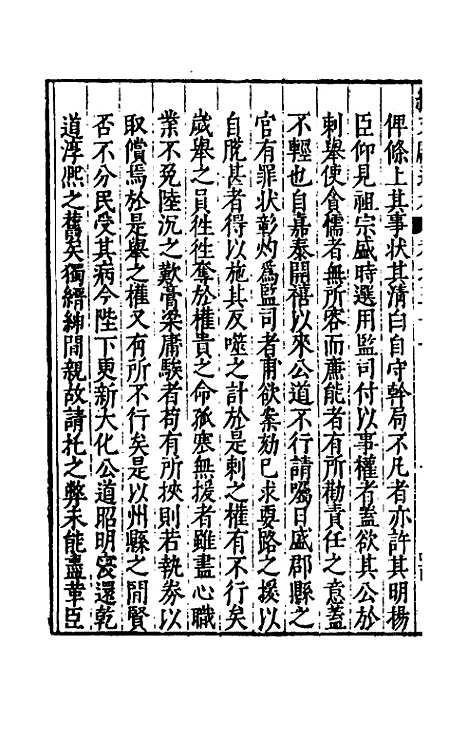 俾條上其事状其清白自守幹局不凡者亦許其明揚
臣仰見祖宗盛時選用監司付以事權者蓋欲其公於
刺舉使貪懦者無所容而廉能者有所勸責任之意蓋
不輕也自嘉泰開禧以來公道不行請囑日盛郡縣之
官有罪狀彰灼為監司者甫欲案劾已求要路之援以
自脱甚者得以施其反噬之計於是刺之權有不行矣
歲舉之員徃徃奪於權貴之命孤寒無援者雖盡心職
業不免陸沉之歎膏粱庸騃者苟有所挾則若執券以
取償焉於是舉之權又有所不行矣是以州縣之間賢
否不分民受其病今陛下更新大化公道昭明寖還乾
道淳熙之舊矣獨縉紳間親故請托之弊未能盡革臣